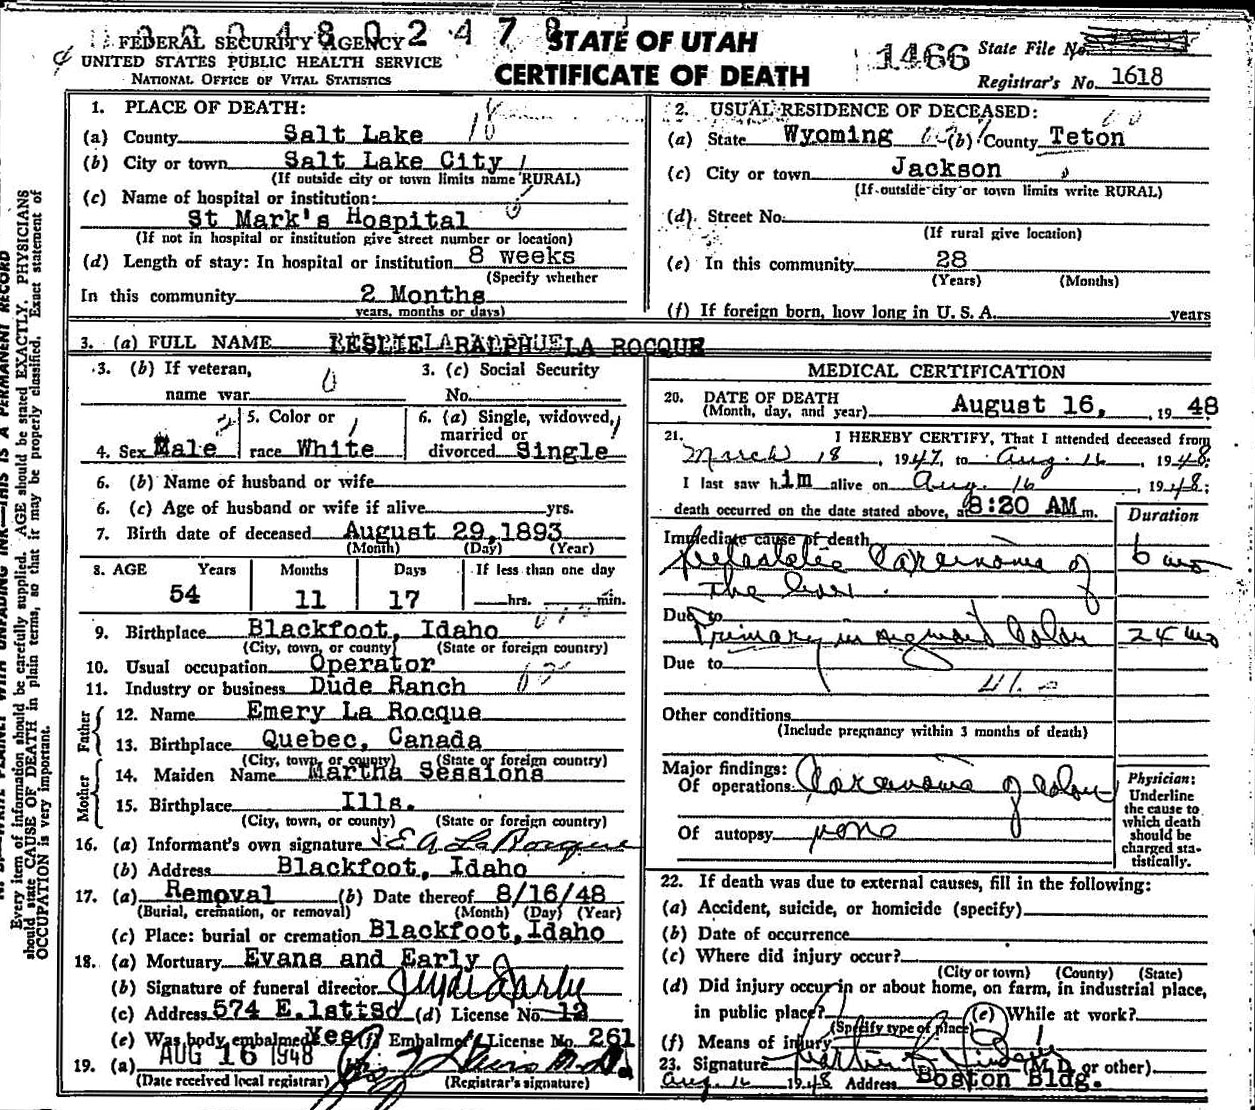 FEDERAL SECURITY AGENCY
UNITED STATES PUBLIC HEALTH SERVICE
NATIONAL OFFICE OF VITAL STATISTICS
STATE OF UTAH
CERTIFICATE OF DEATH
1466 State File No.
Registrar's No. 1618
1. PLACE OF DEATH:
(a) County Salt Lake 18
(b) City or town Salt Lake City 1
(If outside city or town limits name RURAL)
(c) Name of hospital or institution:
St Mark's Hospital 0
(If not in hospital or institution give street number or location)
(d) Length of stay: In hospital or institution 8 weeks
(Specify whether
In this community 2 Months
years, months or days)
2. USUAL RESIDENCE OF DECEASED:
(a) State Wyoming (b) County Teton
(c) City or town Jackson
(If outside city or town limits write RURAL)
(d) Street No.
(If rural give location)
(e) In this community 28
(Years) (Months)
(f) If foreign born, how long in U. S. A. years
3. (a) FULL NAME LA ROCQUE
3. (b) If veteran, name war 0
3. (c) Social Security No.
4. Sex Male 2
5. Color or race White 1
6. (a) Single, widowed, married or divorced Single 1
6. (b) Name of husband or wife
6. (c) Age of husband or wife if alive yrs.
7. Birth date of deceased August 29,1893
(Month) (Day) (Year)
8. AGE Years Months Days If less than one day
54 11 17 hrs. min.
9. Birthplace Blackfoot, Idaho
(City, town, or county) (State or foreign country)
10. Usual occupation Operator
11. Industry or business Dude Ranch
Father
12. Name Emery La Rocque
13. Birthplace Quebec, Canada
(City, town, or county) (State or foreign country)
Mother
14. Maiden Name Martha Sessions
15. Birthplace Ills.
(City, town, or county) (State or foreign country)
16. (a) Informant's own signature E A La Rocque
(b) Address Blackfoot, Idaho
17. (a) Removal (b) Date thereof 8/16/48
(Burial, cremation, or removal) (Month) (Day) (Year)
(c) Place: burial or cremation Blackfoot,Idaho
18. (a) Mortuary Evans and Early
(b) Signature of funeral director
(c) Address 574 E.1sttSd (d) License No. 12
(e) Was body embalmed Yes (f) Embalmer License No. 261
19. (a) AUG 16 1948
(Date received local registrar) (Registrar's signature)
MEDICAL CERTIFICATION
20. DATE OF DEATH
(Month, day, and year) August 16, 1948
21. I HEREBY CERTIFY, That I attended deceased from
March 18, 1947, to Aug. 16, 1948;
I last saw him alive on Aug. 16, 1948;
death occurred on the date stated above, a 8:20 AM m.
Duration
Immediate cause of death
Metastatic Carcinoma of 6 mo
the liver.
Due to
Primary in sigmoid Colon 24 mo
Due to
Other conditions
(Include pregnancy within 3 months of death)
Major findings:
Of operations Carcinoma of colon
Of autopsy none
Physician:
Underline
the cause to
which death
should be
charged sta-
tistically.
22. If death was due to external causes, fill in the following:
(a) Accident, suicide, or homicide (specify)
(b) Date of occurrence
(c) Where did injury occur?
(City or town) (County) (State)
(d) Did injury occur in or about home, on farm, in industrial place,
in public place? (e) While at work?
(Specify type of place)
(f) Means of injury
23. Signature (M. D. or other)
Aug. 16 1948 Address Boston Bldg.
THIS IS A PERMANENT RECORD
Every item of information should be carefully supplied. AGE should be stated EXACTLY. PHYSICIANS
should state CAUSE OF DEATH in plain terms, so that it may be properly classified. Exact statement of
OCCUPATION is very important.